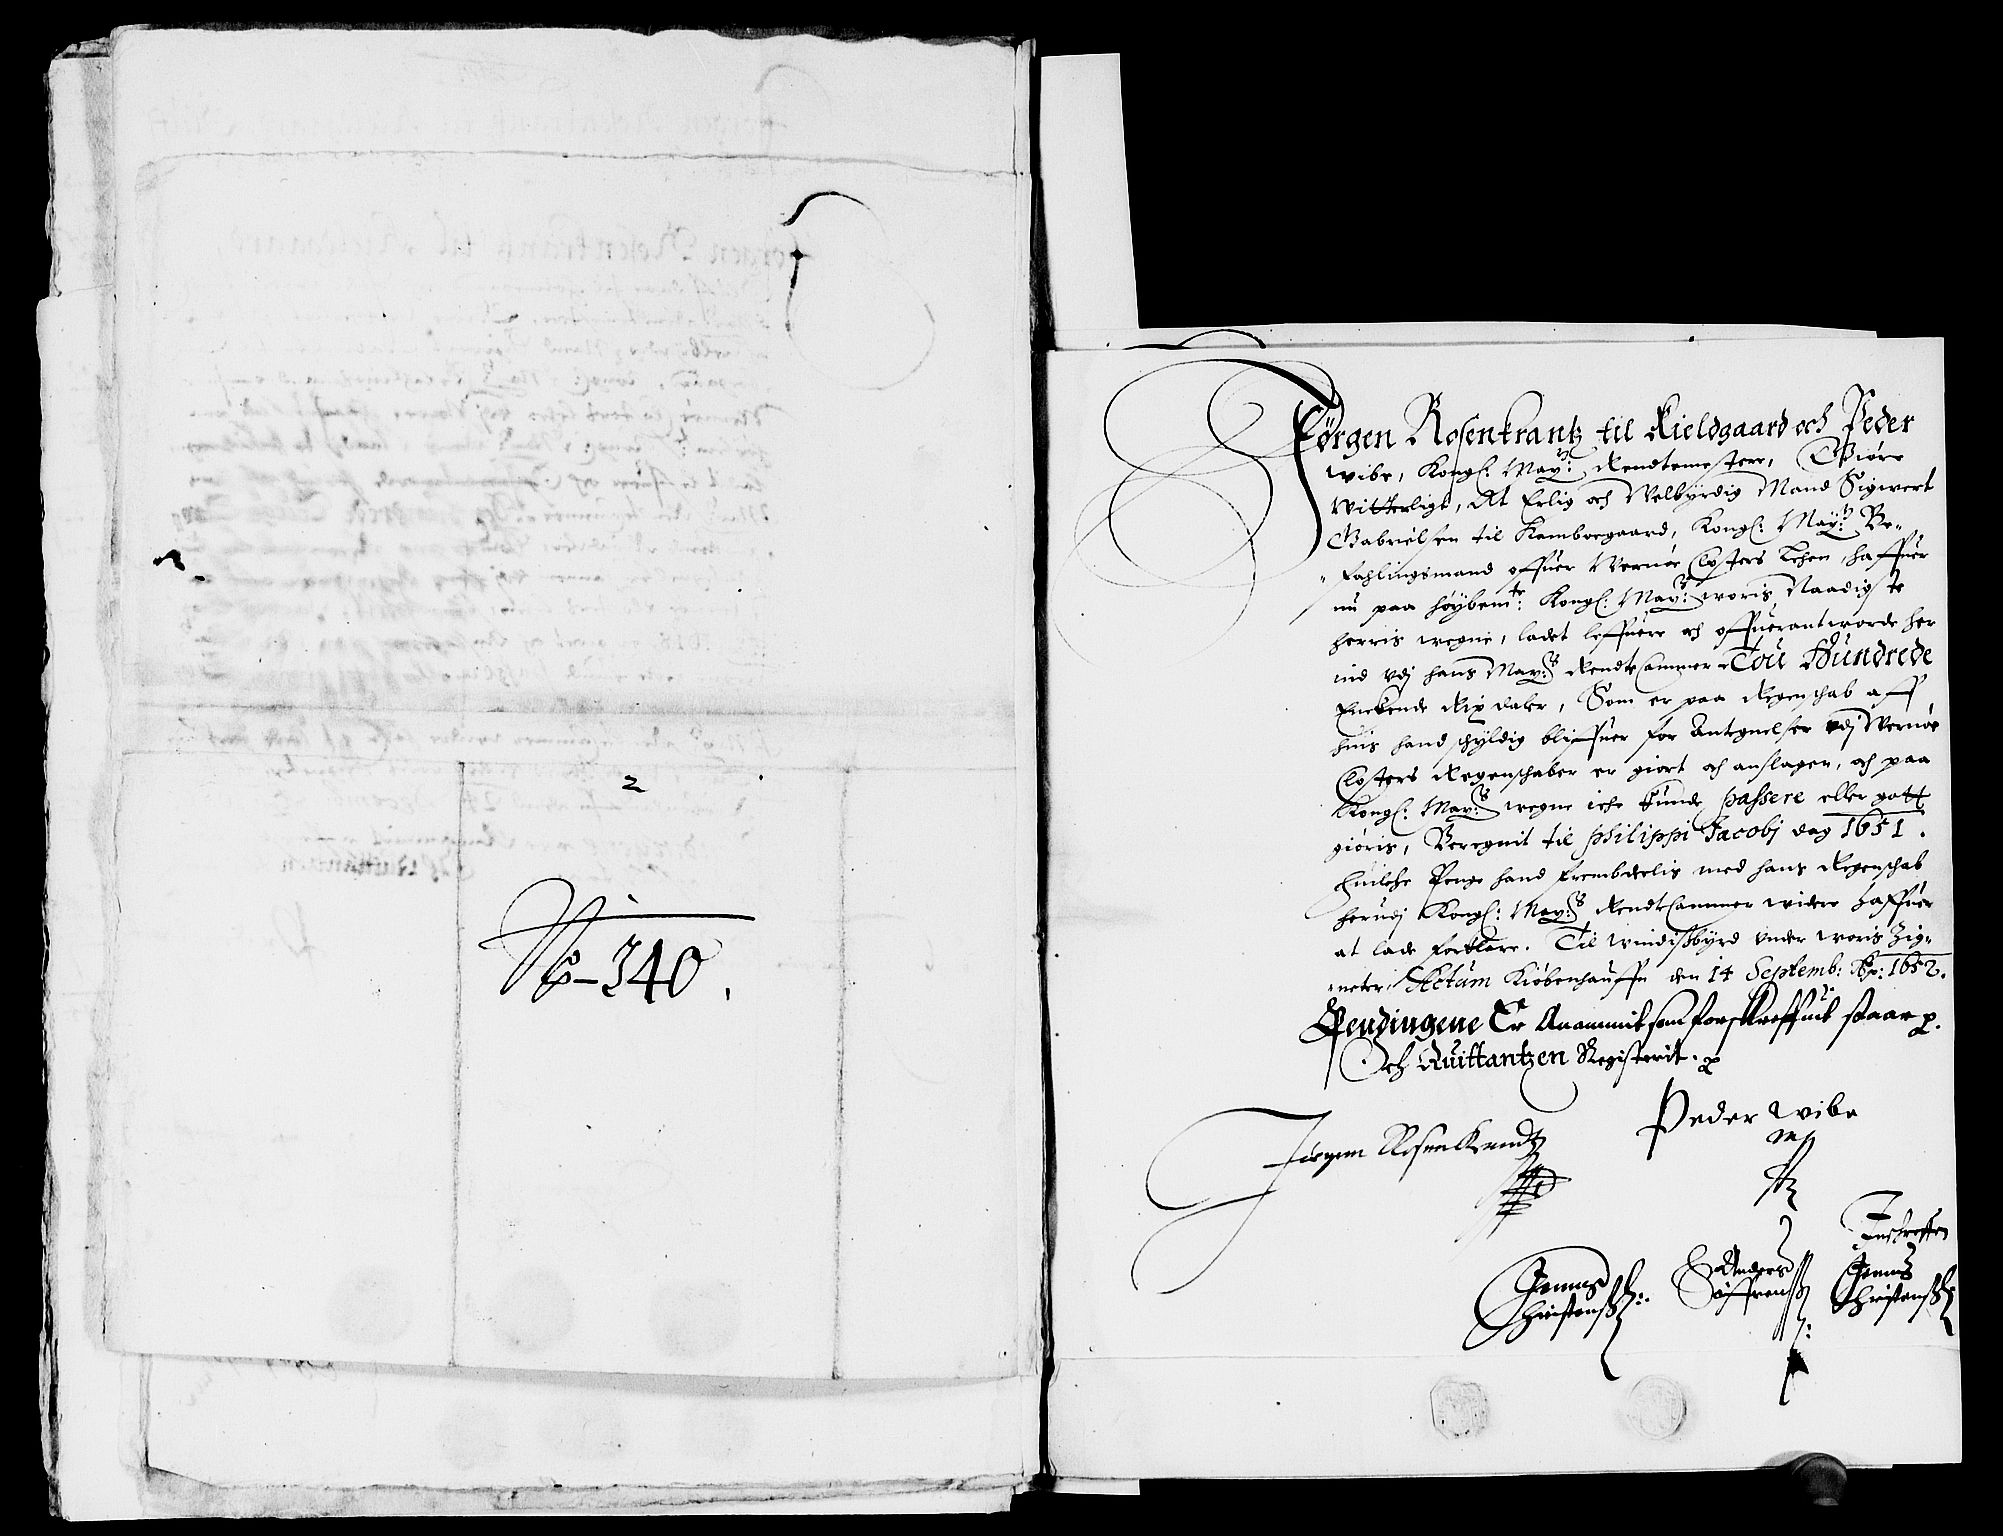 2
No - 340.
Jørgen Rosenkrantz til Kieldgaard och Peder
wibe, Kongl: May:ts Rendtemestere, Giøre
Witterligt, At Erlig och Welbyrdig Mand Sigwert
Gabrielsen til Kamboegaard, Kongl: May:ts Be-
fahlingsmand offuer Wernøe Closters Lehen, haffuer
nu paa høybem:te Kongl: May:ts woris Naadigste
herris wegne, ladet leffuere och offuerantworde her
ind vdj hans May:ts Rendtcammer Tou Hundrede
Enckende Rix daler, Som er paa Regenschab aff
huis hand schyldig bliffuer for Antegnelser vdj Wernøe
Closters Regenschaber er giort och anslagen, och paa
Kongl: May:ts wegne iche kunde passere eller gott
giøris, Beregnit til Philippi Jacobj dag 1651.
huilche Penge hand frembdelis med hans Regenschab
herudj Kongl: May:ts Rendtcammer widere haffuer
at lade forklare. Til windisbyrd under woris Zig-
neter. Actum Kiøbenhauffn den 14 Septemb: Ao: 1652.
Pendingene Er Anammit som forschreffuit staar p.
Och Quittantzen Registerit. p
Peder wibe
Jørgen Rosenkrandtz
mp
Indschreffen
Jennes Anders Jenns
Christenss: Søffrenss Christenss